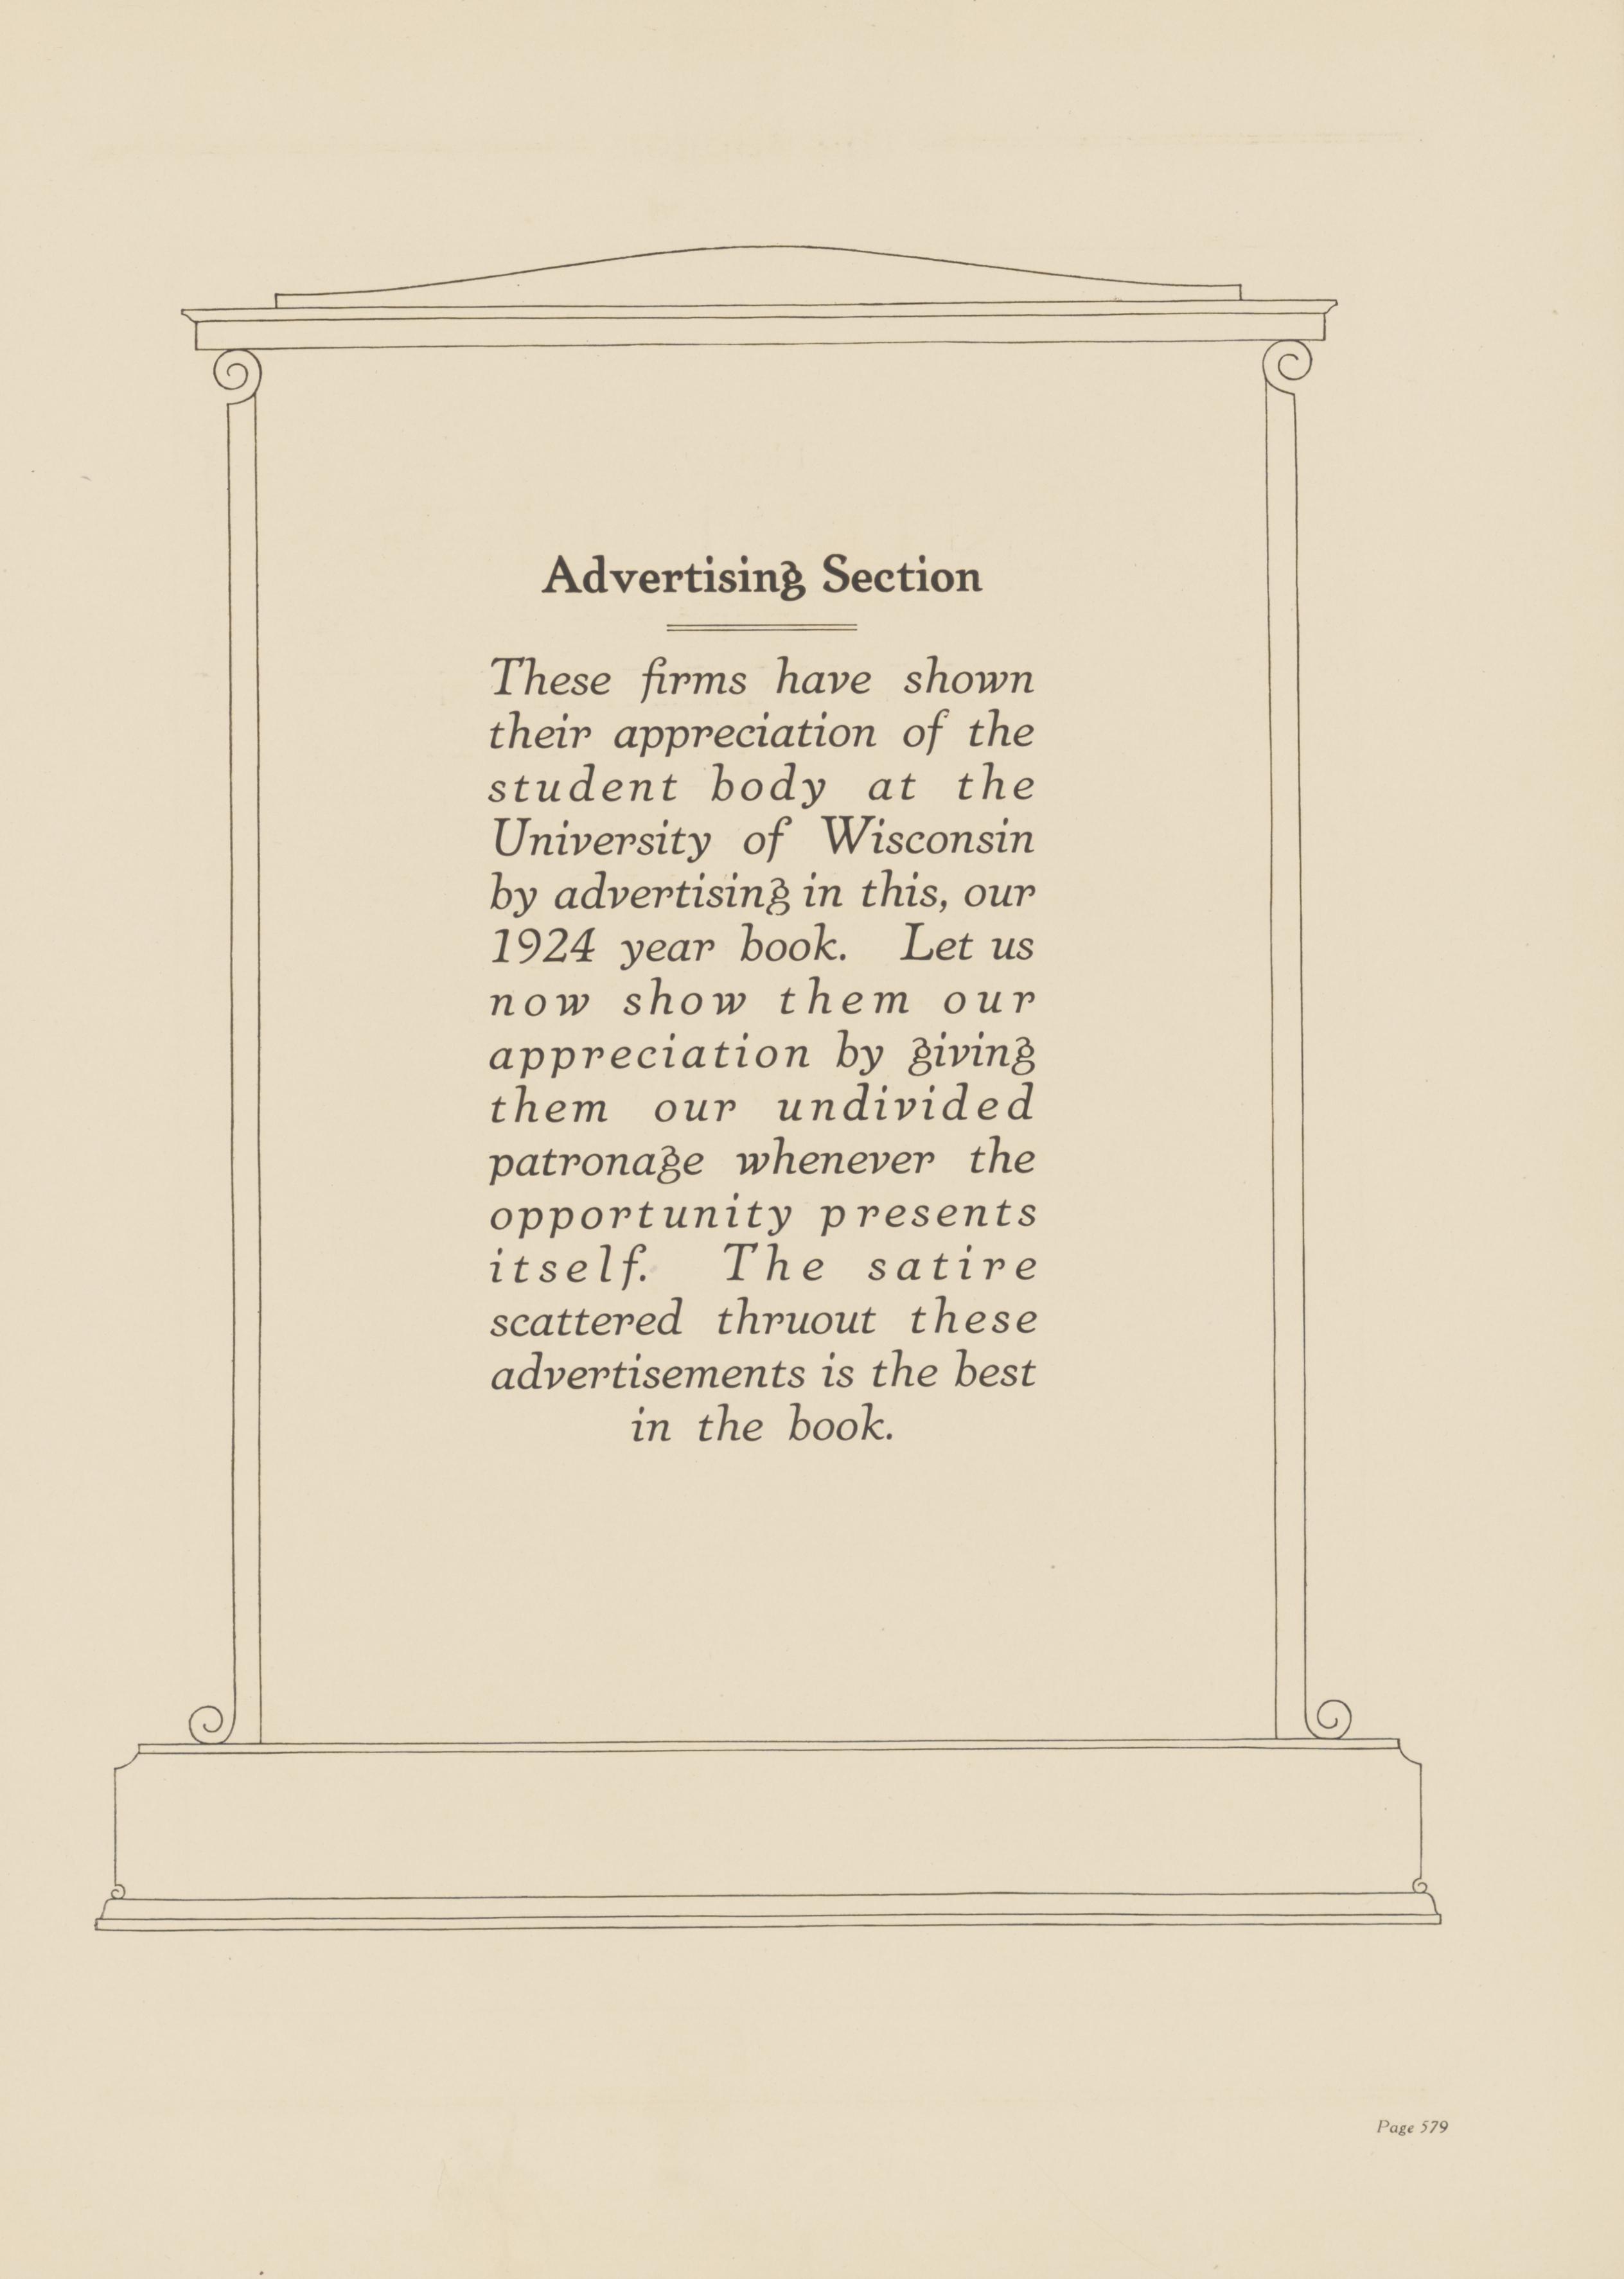 Advertising Section
These firms have shown
their appreciation of the
student body at the
University of Wisconsin
by advertising in this, our
1924 year book. Let us
now show them our
appreciation by giving
them our undivided
patronage whenever the
opportunity presents
itself. The satire
scattered thruout these
advertisements is the best
in the book.
Page 579